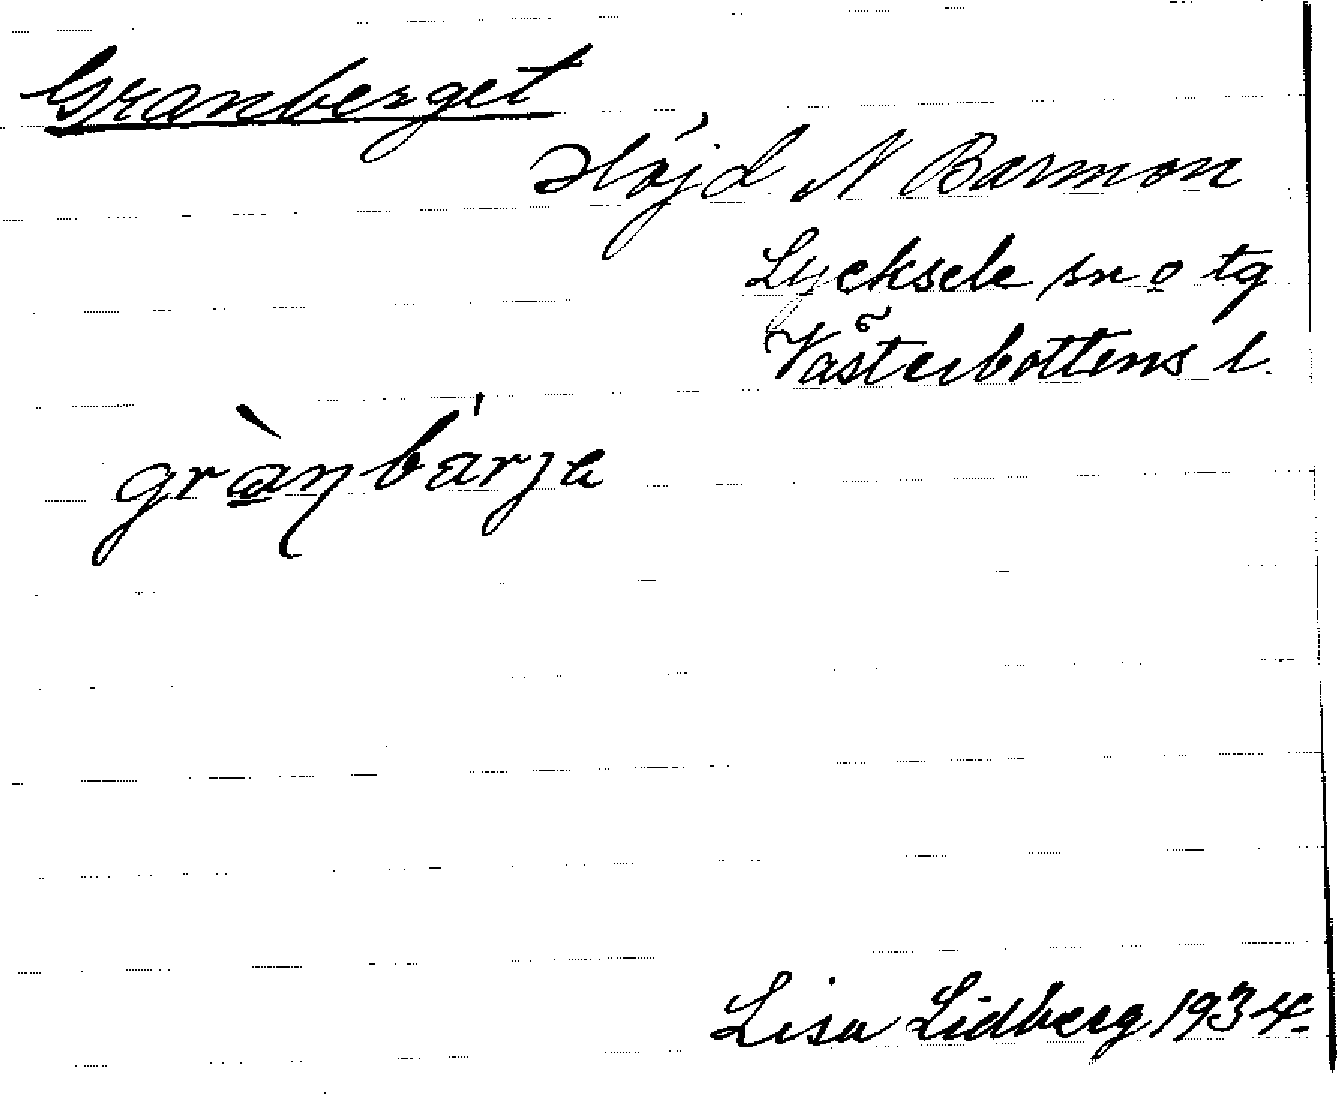 Granberget
Höjd N Barmon
Lycksele sn o tg
Västerbottens l.
grànbárja
Lisa Lidberg 1934